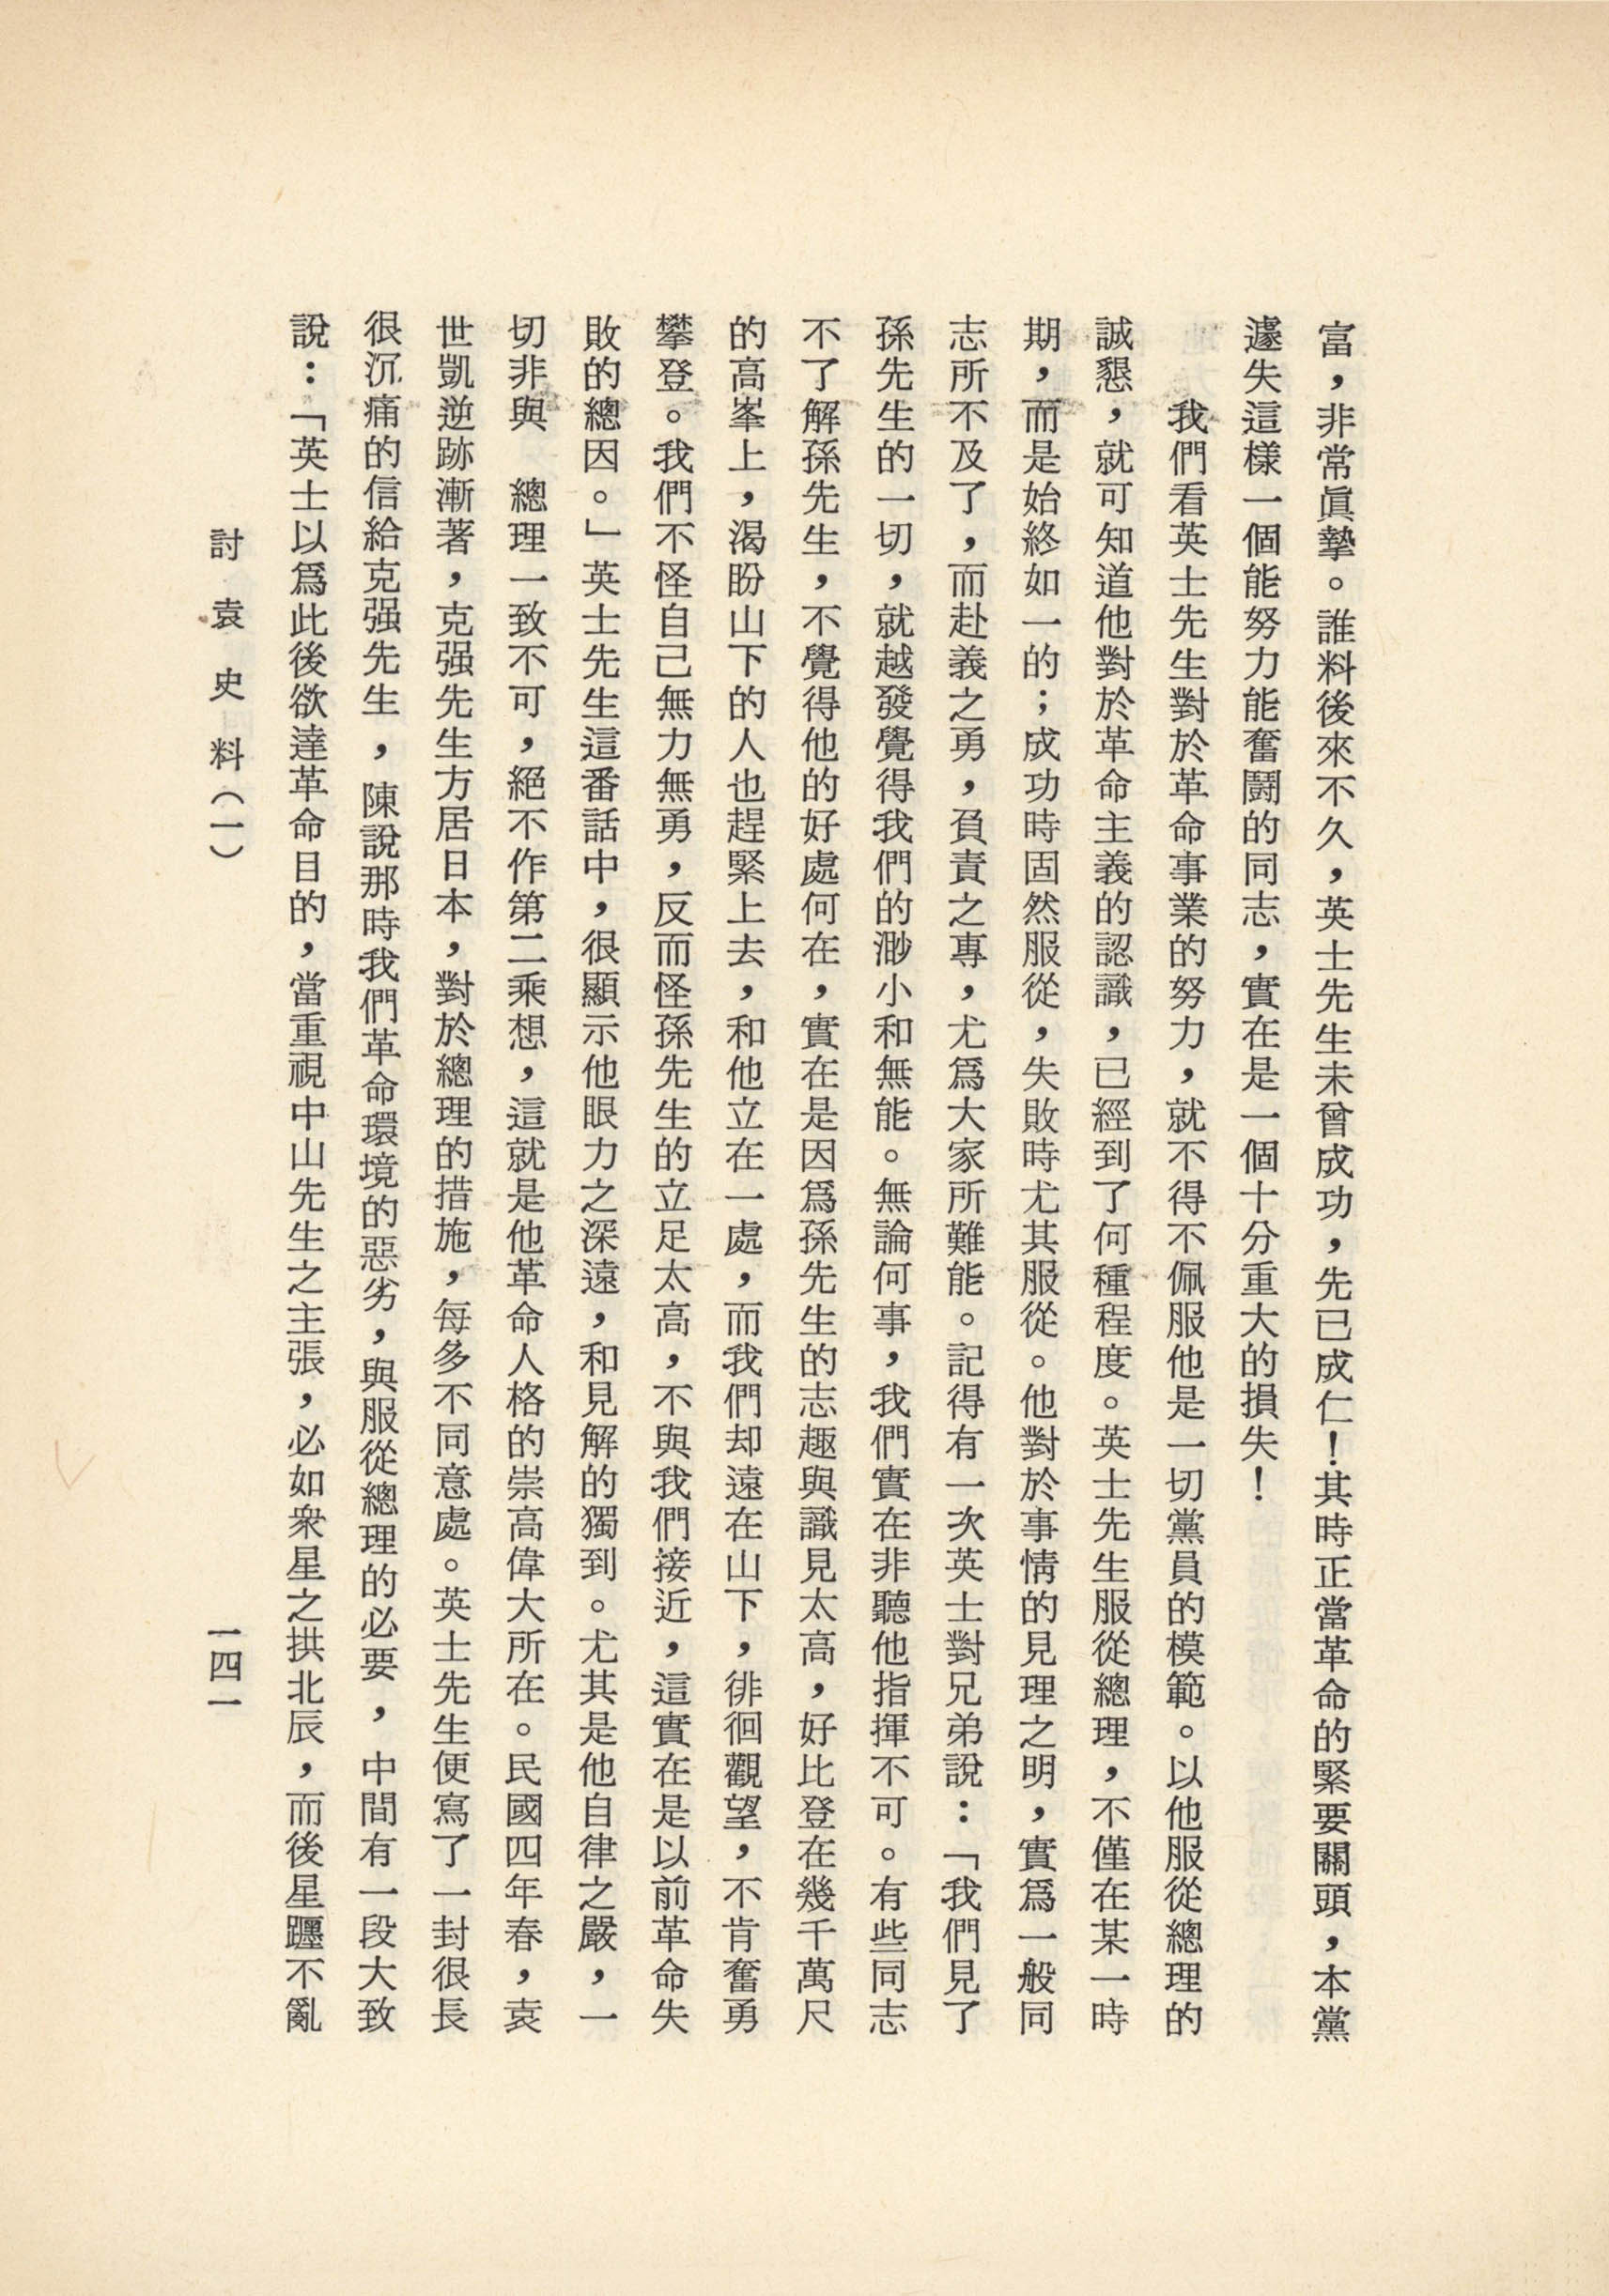 富，非常眞摯。誰料後來不久，英士先生未曾成功，先已成仁！其時正當革命的緊要關頭，本黨
遽失這樣一個能努力能奮鬪的同志，實在是一個十分重大的損失！
我們看英士先生對於革命事業的努力，就不得不佩服他是一切黨員的模範。以他服從總理的
誠懇，就可知道他對於革命主義的認識，已經到了何種程度。英士先生服從總理，不僅在某一時
期，而是始終如一的；成功時固然服從，失敗時尤其服從。他對於事情的見理之明，實爲一般同
志所不及了，而赴義之勇，負責之專，尤爲大家所難能。記得有一次英士對兄弟說：「我們見了
孫先生的一切，就越發覺得我們的渺小和無能。無論何事，我們實在非聽他指揮不可。有些同志
不了解孫先生，不覺得他的好處何在，實在是因爲孫先生的志趣與識見太高，好比登在幾千萬尺
的高峯上，渴盼山下的人也趕緊上去，和他立在一處，而我們却遠在山下，徘徊觀望，不肯奮勇
攀登。我們不怪自己無力無勇，反而怪孫先生的立足太高，不與我們接近，這實在是以前革命失
敗的總因。」英士先生這番話中，很顯示他眼力之深遠，和見解的獨到。尤其是他自律之嚴，一
切非與　總理一致不可，絕不作第二乘想，這就是他革命人格的崇高偉大所在。民國四年春，袁
世凱逆跡漸著，克强先生方居日本，對於總理的措施，每多不同意處。英士先生便寫了一封很長
很沉痛的信給克强先生，陳說那時我們革命環境的惡劣，與服從總理的必要，中間有一段大致
說：「英士以爲此後欲達革命目的，當重視中山先生之主張，必如衆星之拱北辰，而後星躔不亂
討袁史料（一）
一四一